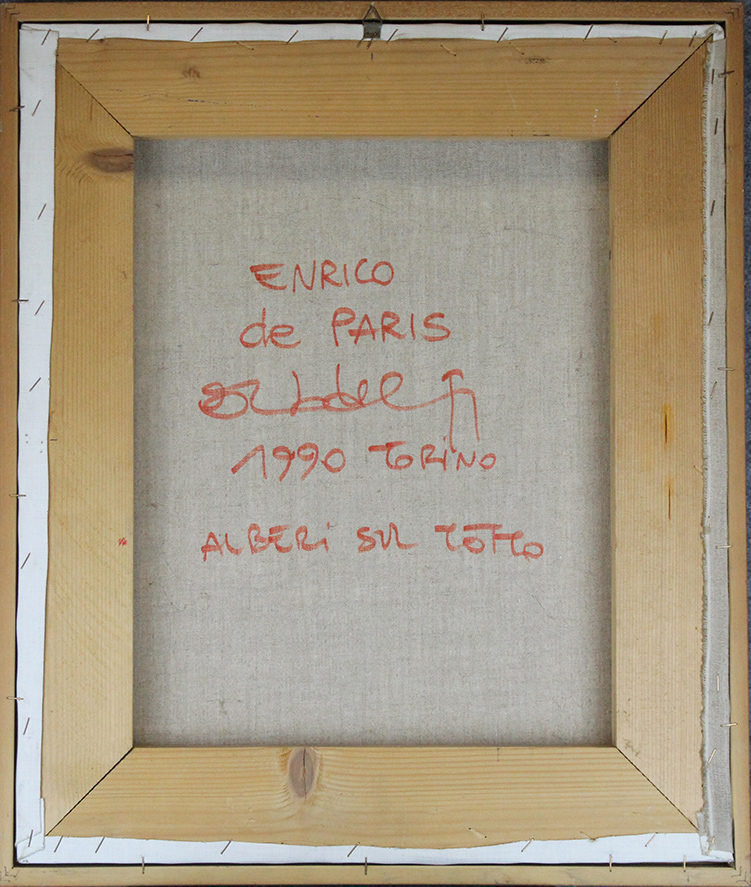 ENRICO
de PARIS
1990 TORINO
ALBERi SUL TOTTO